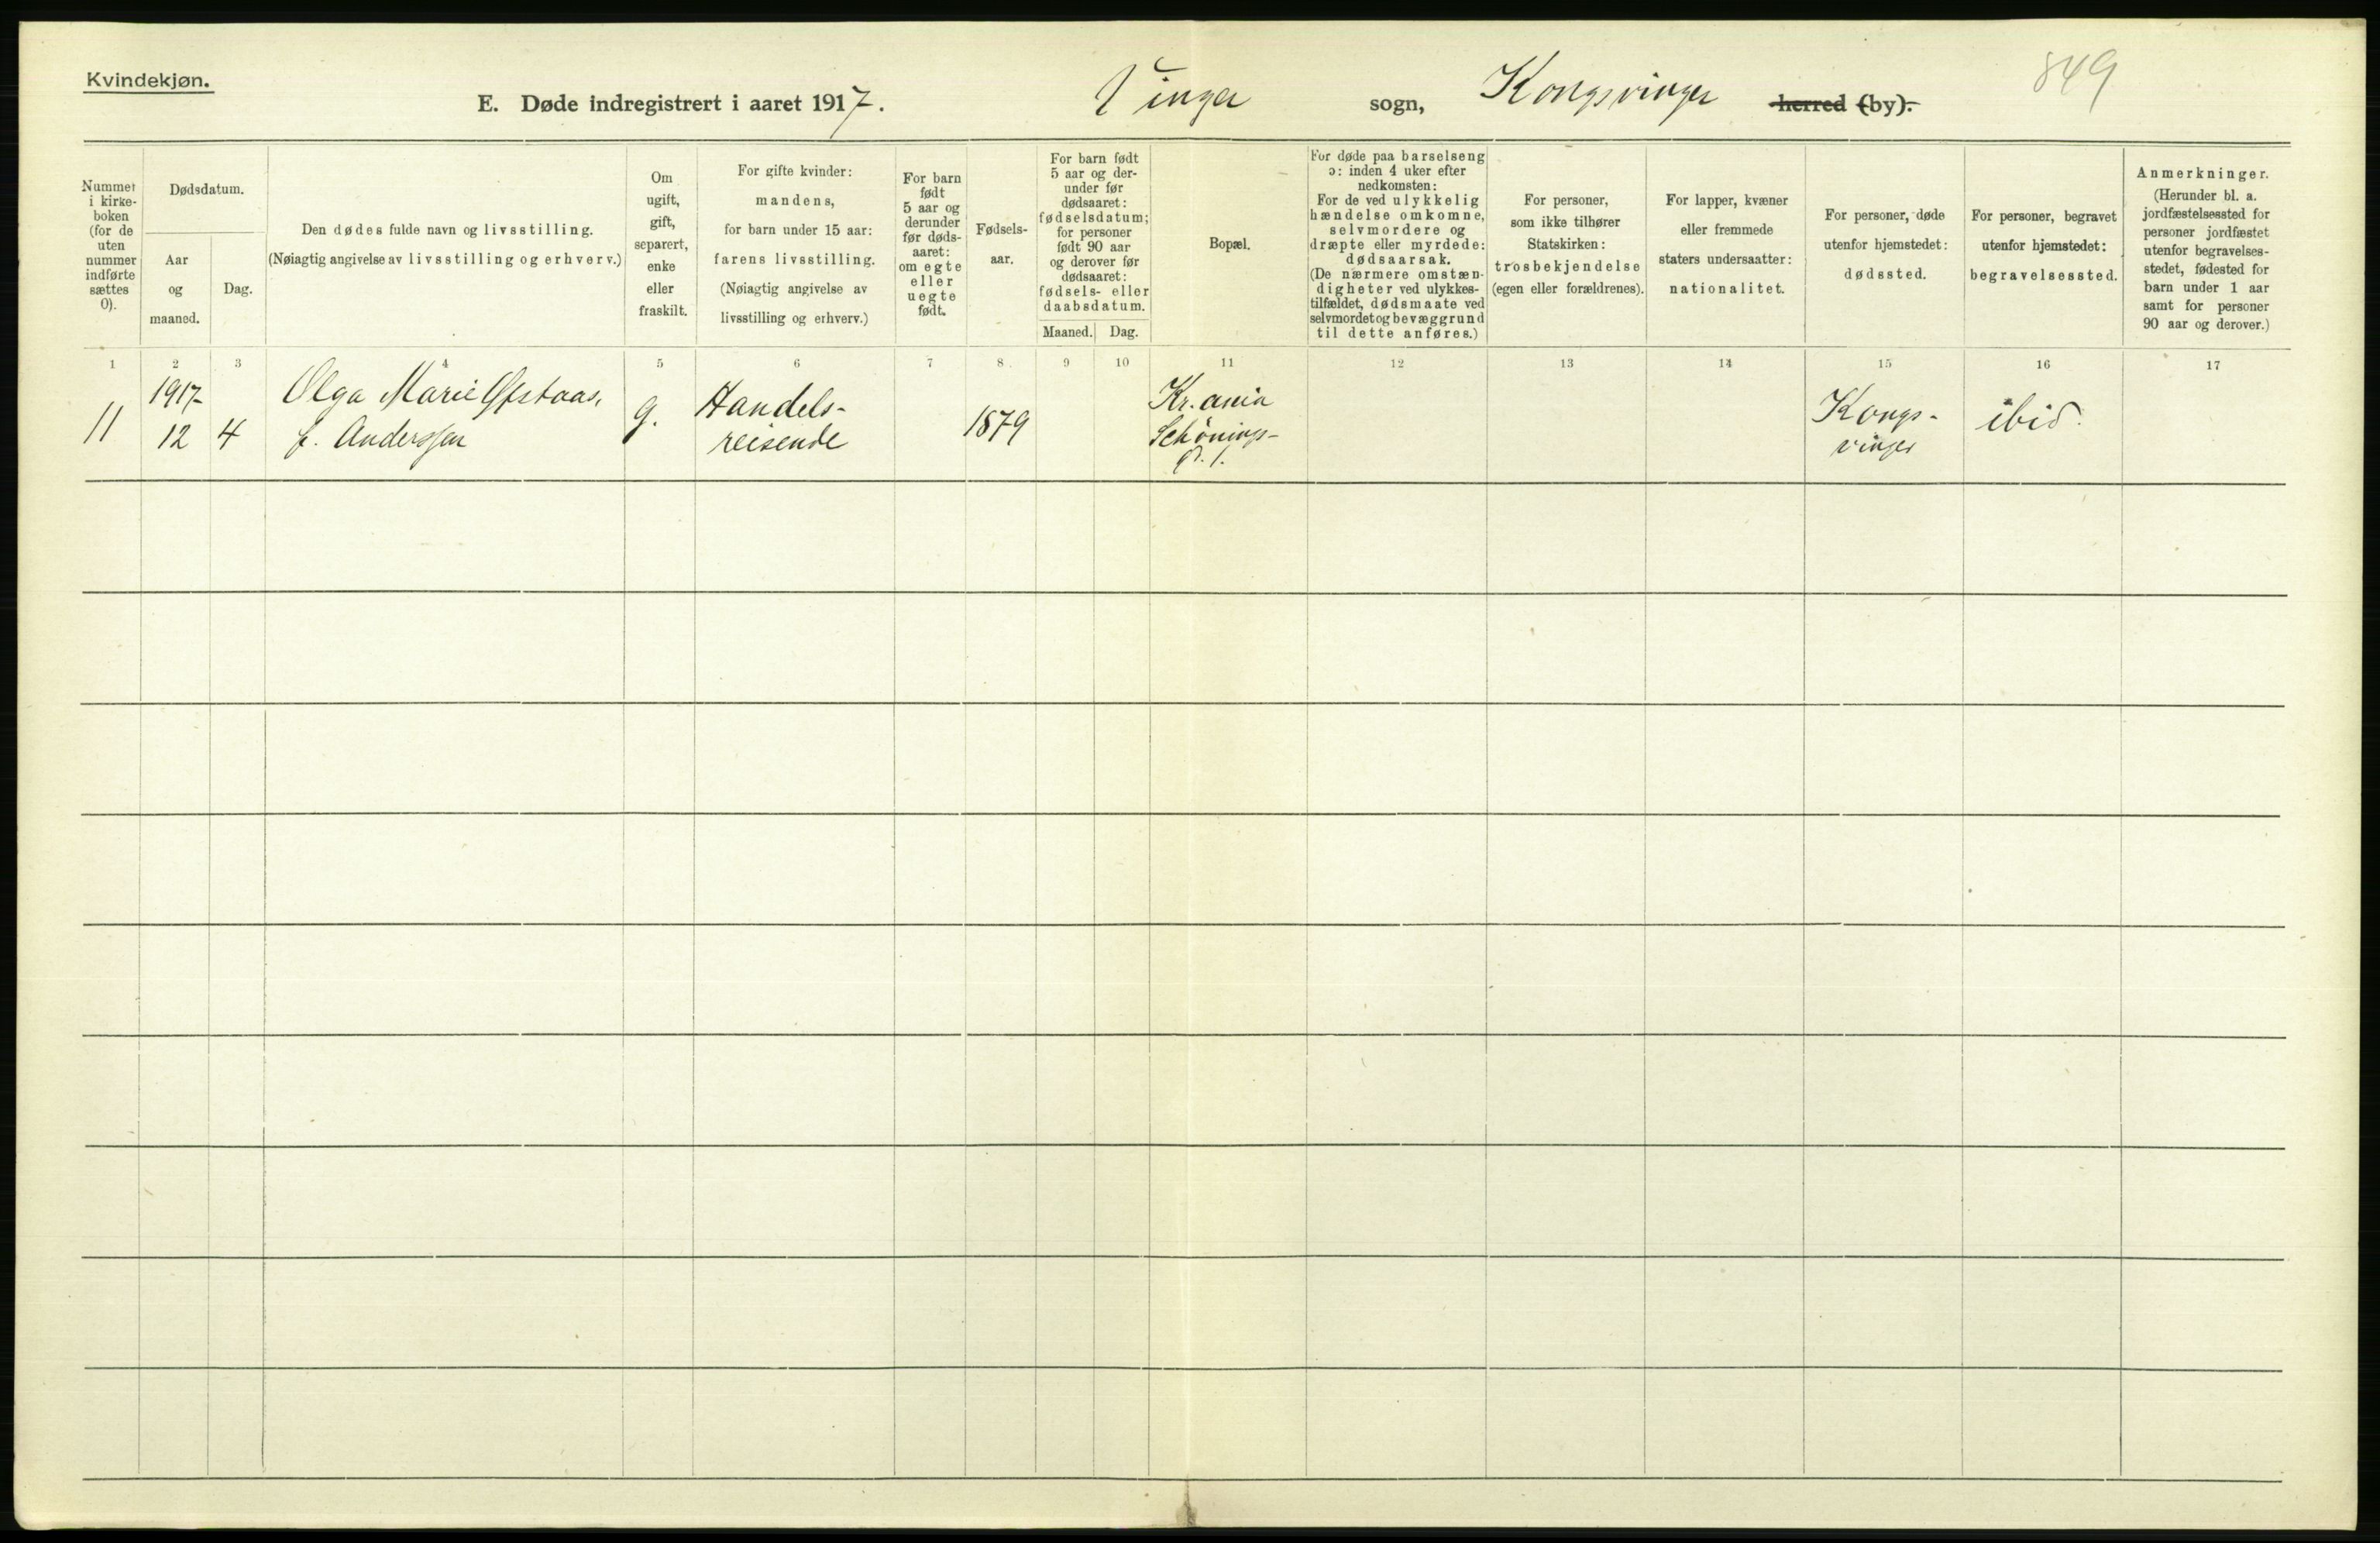 Kvindekjøn.
E. Døde indregistrert i aaret 1917. Vinger sogn, Kongsvinger herred (by).
849
Nummer i kirke-boken (for de uten nummer indførte sættes 0).
Dødsdatum.
Aar og maaned.
Dag.
Den dødes fulde navn og livsstilling.
(Nøiagtig angivelse av livsstilling og erhverv.)
Om ugift, gift, separert, enke eller fraskilt.
For gifte kvinder:
mandens,
for barn under 15 aar:
farens livsstilling.
(Nøiagtig angivelse av
livsstilling og erhverv.)
For barn født 5 aar og derunder før døds-aaret: om egte eller uegte født.
Fødsels-aar.
For barn født
5 aar og der-
under før
dødsaaret:
fødselsdatum;
for personer
født 90 aar
og derover før
dødsaaret:
fødsels- eller
daabsdatum.
Maaned. Dag.
Bopæl.
For døde paa barselseng
ɔ: inden 4 uker efter
nedkomsten:
For de ved ulykkelig
hændelse omkomne,
selvmordere og
dræpte eller myrdede:
dødsaarsak.
(De nærmere omstæn-
digheter ved ulykkes-
tilfældet, dødsmaate ved
selvmordet og bevæggrund
til dette anføres.)
For personer,
som ikke tilhører
Statskirken:
trosbekjendelse
(egen eller forældrenes).
For lapper, kvæner
eller fremmede
staters undersaatter:
nationalitet.
For personer, døde
utenfor hjemstedet:
dødssted.
For personer, begravet
utenfor hjemstedet:
begravelsessted.
Anmerkninger.
(Herunder bl. a.
jordfæstelsessted for
personer jordfæstet
utenfor begravelses-
stedet, fødested for
barn under 1 aar
samt for personer
90 aar og derover.)
1 2 3 4 5 6 7 8 9 10 11 12 13 14 15 16 17
11
1917-
12 4
Olga Marie Ofstaas,
f. Anderssen
g.
Handels-
reisende
1879
Kr.ania
Schønings-
gt. 1.
Kongs-
vinger
ibid.